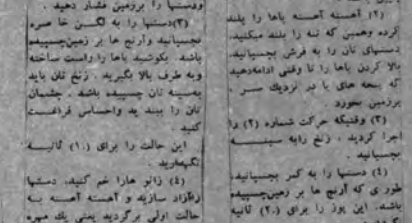 (۲) آهسته آهسته پاها را بلند
کرده وهمین که تنه را بلند میکنید،
دستهای تان را به فرش بچسپانید.
بالا کردن پاها را تا وقتی ادامه‌دهید
که پنجه های پا در نزدیک سر ،
برزمین بخورد
(۳) وقتیکه حرکت شماره (۲) را
اجرا کردید ، زنخ رابه سینـــه
بچسپانید .
(٤) دستها را به کمر بچسپانید،
طوری که آرنج ها بر زمین‌چسپیده
باشد. این پوز را برای (۲۰) ثانیه
ودستها را برزمین فشار دهید .
(۳) دستها را به
بچسپانید وآرنج ها بر زمین‌چسپیده
باشد. بکوشید پاها را راست ساخته
وبه طرف بالا بگیرید . زنخ تان باید
به‌سینه تان چسپیده باشد . چشمان
تان را ببندید واحساس فراغــت
کنید .
این حالت را برای (۱۰) ثانیــه
نگهدارید .
(٤) زانو هارا خم کنید، دستها
راآزاد سازید و آهسته آهسته به
حالت اولی برگردید یعنی یك مهره